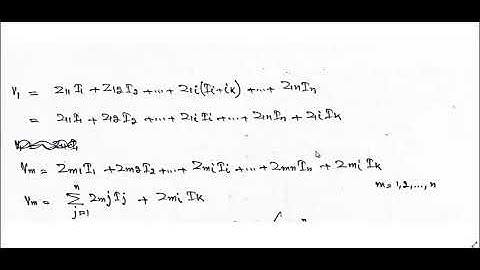 V₁ = Z₁₁I₁ + Z₁₂I₂ + ... + Z₁ᵢ(Iᵢ+iₖ) + ... + Z₁ₙIₙ
= Z₁₁I₁ + Z₁₂I₂ + ... + Z₁ᵢIᵢ + ... + Z₁ₙIₙ + Z₁ᵢIₖ
Vₘ = Zₘ₁I₁ + Zₘ₂I₂ + ... + ZₘᵢIᵢ + ... + ZₘₙIₙ + ZₘᵢIₖ
m = 1,2,...,n
Vₘ = ∑ⁿⱼ₌₁ ZₘⱼIⱼ + ZₘᵢIₖ